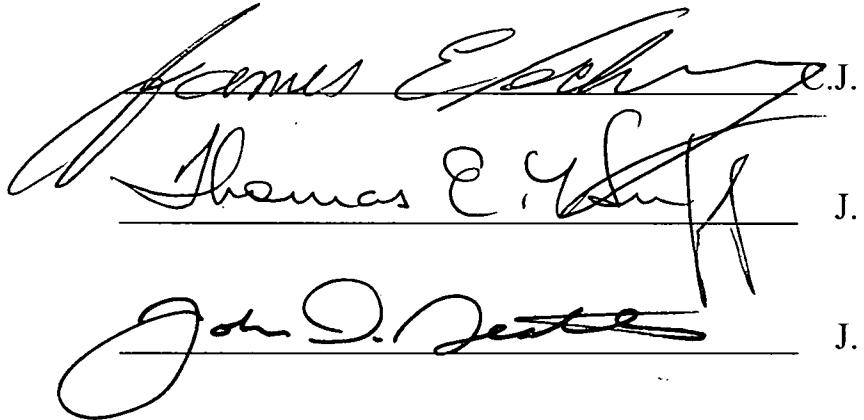 James E. C.J.
Thomas E. J.
John D. J.